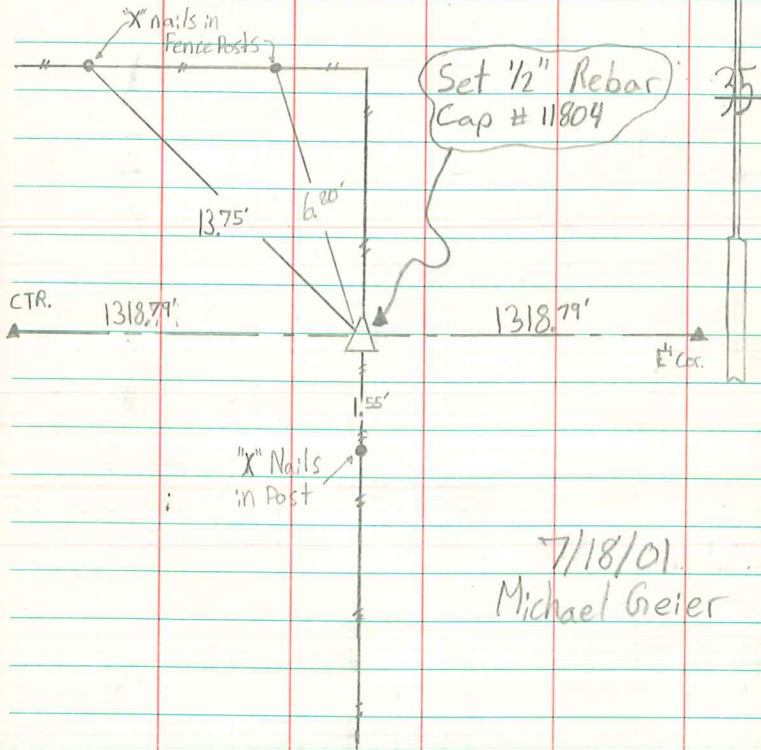 "X" nails in
Fence Posts
Set 1/2" Rebar
Cap # 11804
35
13.75'
6.80'
CTR.
1318.79'
1318.79'
E 1/4 Cor.
1.55'
"X" Nails
in Post
7/18/01
Michael Geier